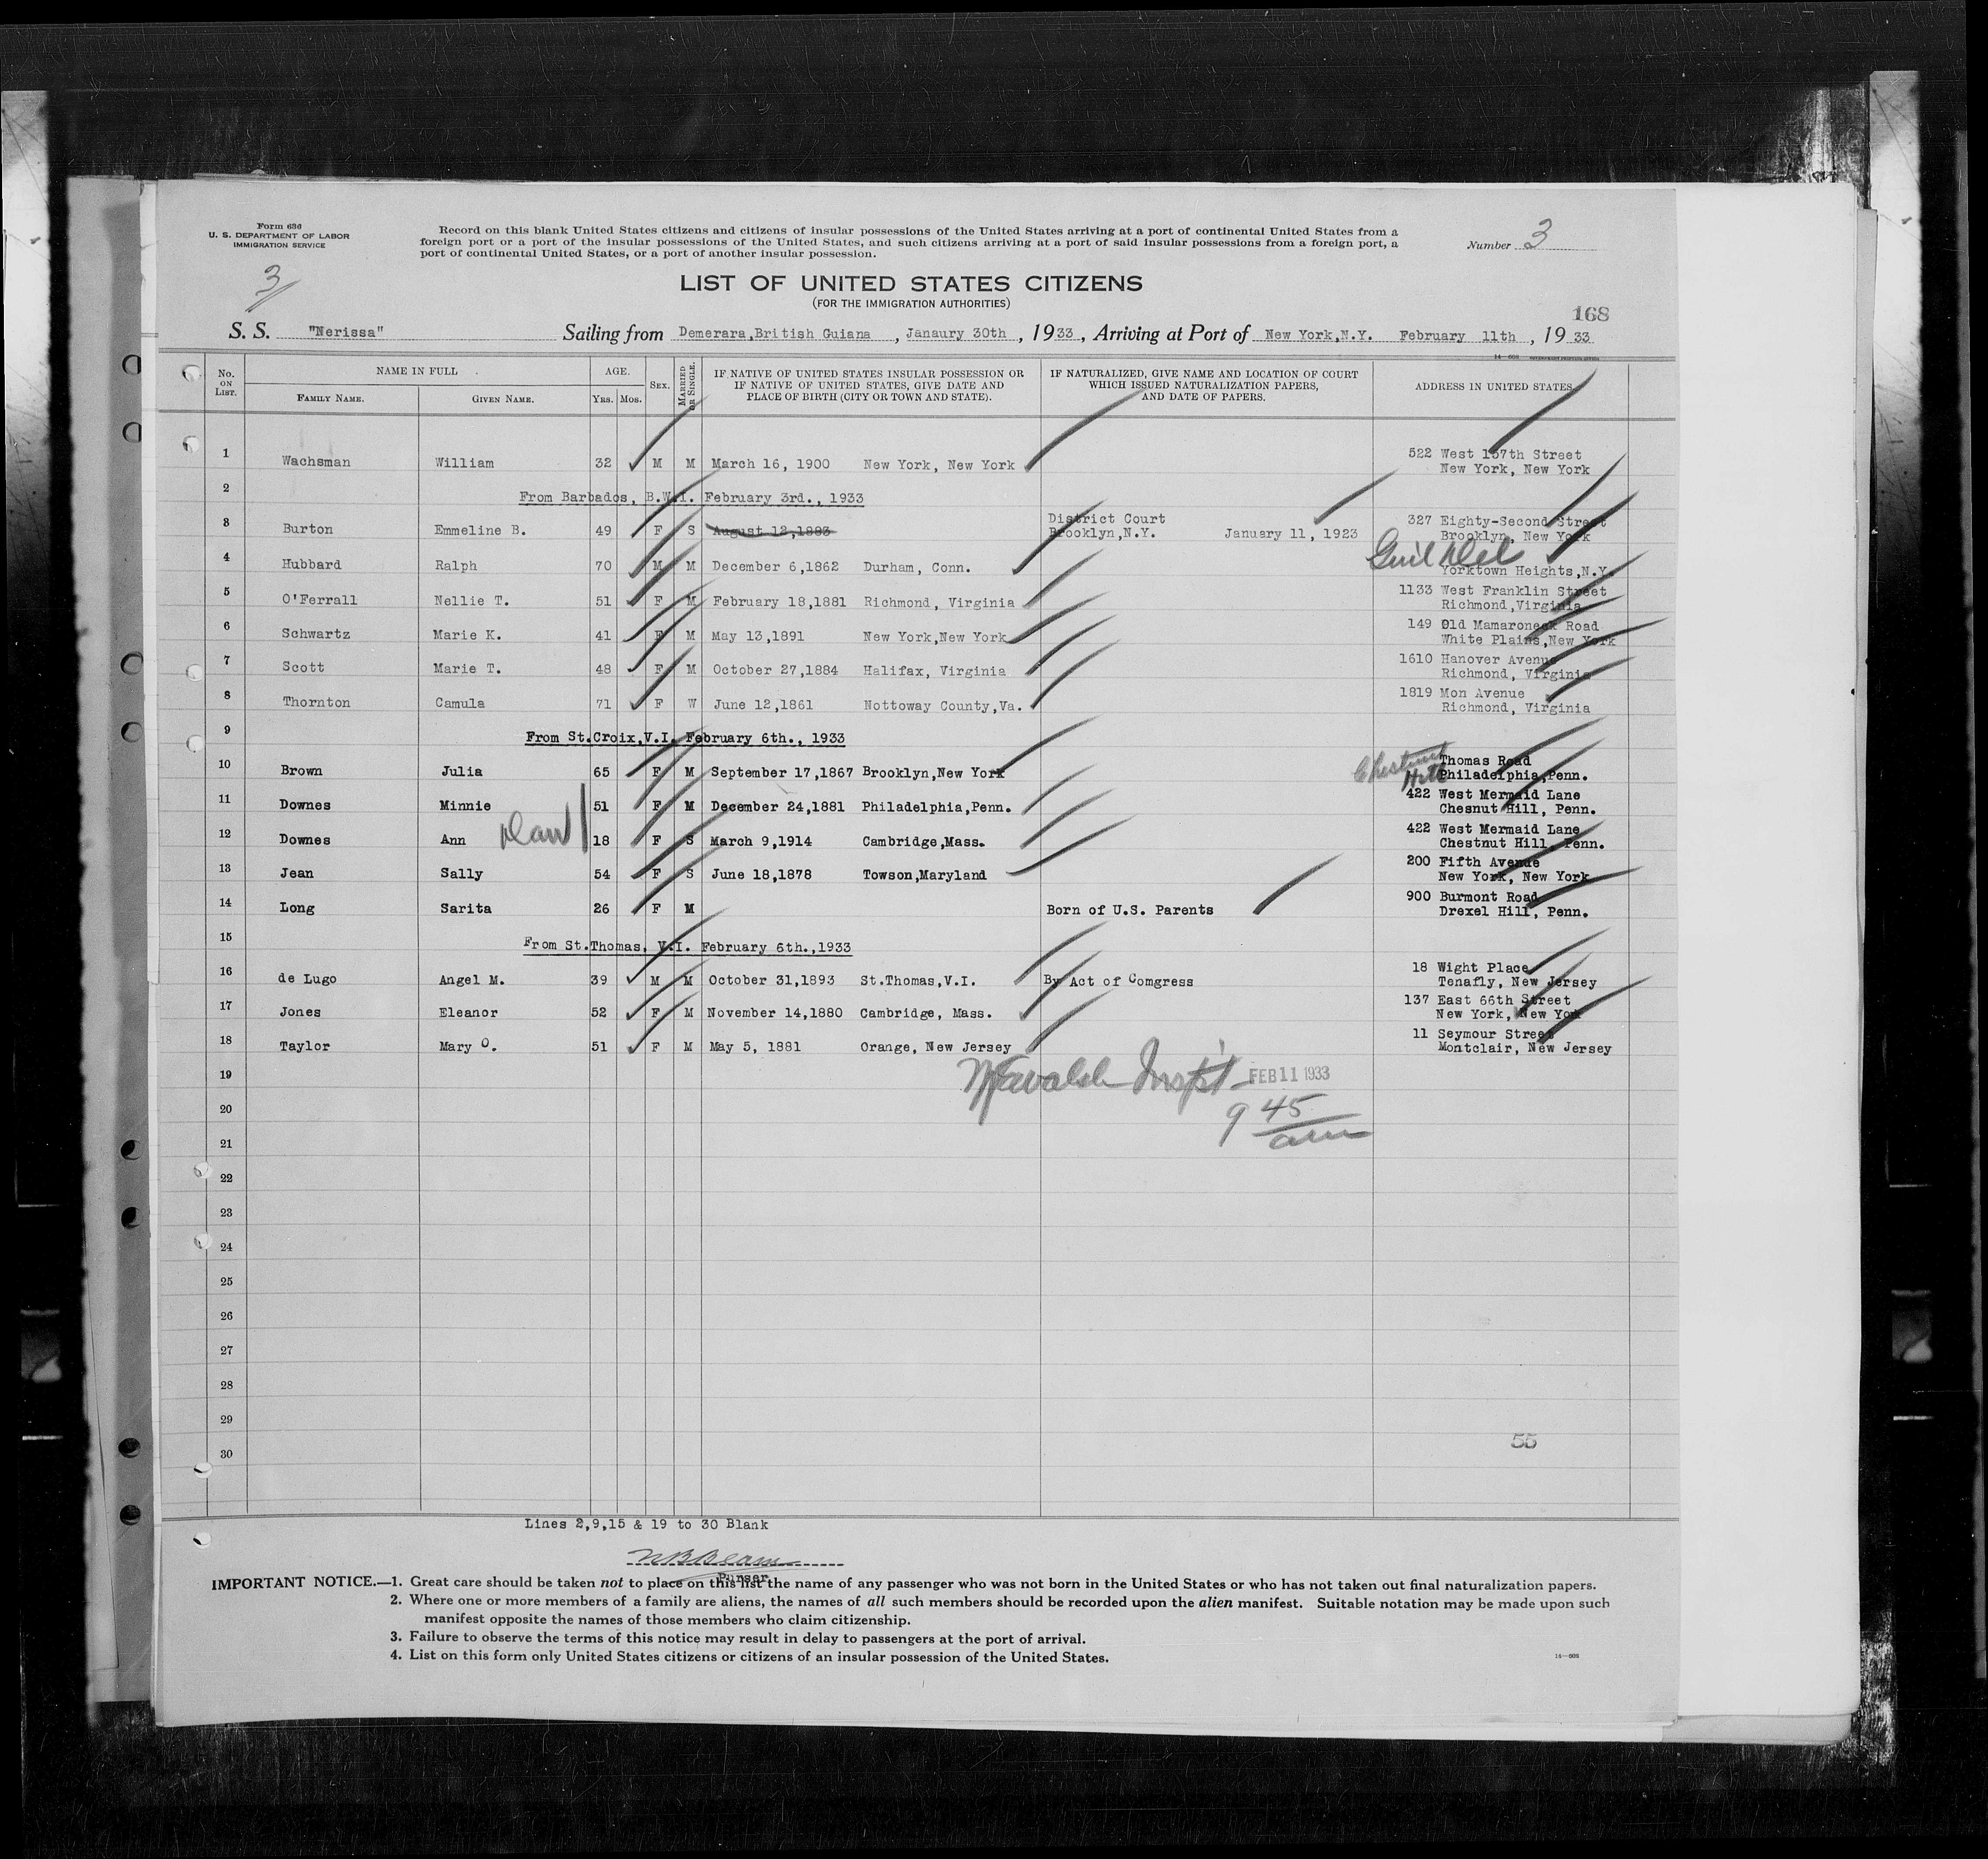 Form 630
U. S. DEPARTMENT OF LABOR
IMMIGRATION SERVICE
Record on this blank United States citizens and citizens of insular possessions of the United States arriving at a port of continental United States from a
foreign port or a port of the insular possessions of the United States, and such citizens arriving at a port of said insular possessions from a foreign port, a
port of continental United States, or a port of another insular possession.
Number 3
3
LIST OF UNITED STATES CITIZENS
(FOR THE IMMIGRATION AUTHORITIES)
168
S. S. "Nerissa" Sailing from Demerara,British Guiana , Janaury 30th , 1933 , Arriving at Port of New York,N.Y. February 11th , 19 33
No. ON LIST.
NAME IN FULL
FAMILY NAME. GIVEN NAME.
AGE.
YRS. MOS.
SEX.
MARRIED OR SINGLE.
IF NATIVE OF UNITED STATES INSULAR POSSESSION OR
IF NATIVE OF UNITED STATES, GIVE DATE AND
PLACE OF BIRTH (CITY OR TOWN AND STATE).
IF NATURALIZED, GIVE NAME AND LOCATION OF COURT
WHICH ISSUED NATURALIZATION PAPERS,
AND DATE OF PAPERS.
ADDRESS IN UNITED STATES
1 Wachsman William 32 M M March 16, 1900 New York, New York 522 West 157th Street
New York, New York
2 From Barbados, B.W.I. February 3rd., 1933
3 Burton Emmeline B. 49 F S August 12,1883 District Court
Brooklyn,N.Y. January 11, 1923 327 Eighty-Second Street
Brooklyn, New York
4 Hubbard Ralph 70 M M December 6,1862 Durham, Conn.
Yorktown Heights,N.Y.
5 O'Ferrall Nellie T. 51 F M February 18,1881 Richmond, Virginia 1133 West Franklin Street
Richmond,Virginia
6 Schwartz Marie K. 41 F M May 13,1891 New York,New York 149 Old Mamaroneck Road
White Plains,New York
7 Scott Marie T. 48 F M October 27,1884 Halifax, Virginia 1610 Hanover Avenue
Richmond, Virginia
8 Thornton Camula 71 F W June 12,1861 Nottoway County,Va. 1819 Mon Avenue
Richmond, Virginia
9 From St.Croix,V.I. February 6th., 1933
10 Brown Julia 65 F M September 17,1867 Brooklyn,New York Chestnut Hill Thomas Road
Philadelphia,Penn.
11 Downes Minnie 51 F M December 24,1881 Philadelphia,Penn. 422 West Mermaid Lane
Chesnut Hill, Penn.
12 Downes Ann 18 F S March 9,1914 Cambridge,Mass. 422 West Mermaid Lane
Chestnut Hill, Penn.
13 Jean Sally 54 F S June 18,1878 Towson,Maryland 200 Fifth Avenue
New York, New York
14 Long Sarita 26 F M Born of U.S. Parents 900 Burmont Road
Drexel Hill, Penn.
15 From St.Thomas, V.I. February 6th.,1933
16 de Lugo Angel M. 39 M M October 31,1893 St.Thomas,V.I. By Act of Comgress 18 Wight Place
Tenafly, New Jersey
17 Jones Eleanor 52 F M November 14,1880 Cambridge, Mass. 137 East 66th Street
New York, New York
18 Taylor Mary O. 51 F M May 5, 1881 Orange, New Jersey 11 Seymour Street
Montclair, New Jersey
19 FEB 11 1933
20 9 45
am
21
22
23
24
25
26
27
28
29
30
55
Lines 2,9,15 & 19 to 30 Blank
Purser
IMPORTANT NOTICE.—1. Great care should be taken not to place on this list the name of any passenger who was not born in the United States or who has not taken out final naturalization papers.
2. Where one or more members of a family are aliens, the names of all such members should be recorded upon the alien manifest. Suitable notation may be made upon such
manifest opposite the names of those members who claim citizenship.
3. Failure to observe the terms of this notice may result in delay to passengers at the port of arrival.
4. List on this form only United States citizens or citizens of an insular possession of the United States.